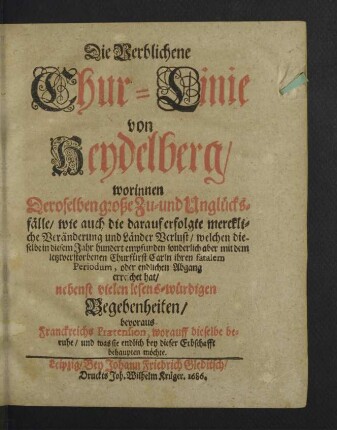 Die Verblichene
Chur-Linie
von
Heydelberg/
worinnen
Deroselben große Zu- und Unglücks-
fälle/ wie auch die darauf erfolgte merckli-
che Veränderung und Länder Verlust/ welchen die-
selbe in diesem Jahr hundert empfunden sonderlich aber mit dem
letztverstorbenen Churfürst Carln ihren fatalem
Periodum, oder endlichen Abgang
erreichet hat/
nebenst vielen lesens-würdigen
Begebenheiten/
bevoraus
Franckreichs Prætension, worauff dieselbe be-
ruhe/ und was sie endlich bey dieser Erbschafft
behaupten möchte.
Leipzig/ Bey Johann Friedrich Gleditsch/
Druckts Joh. Wilhelm Krüger. 1686.